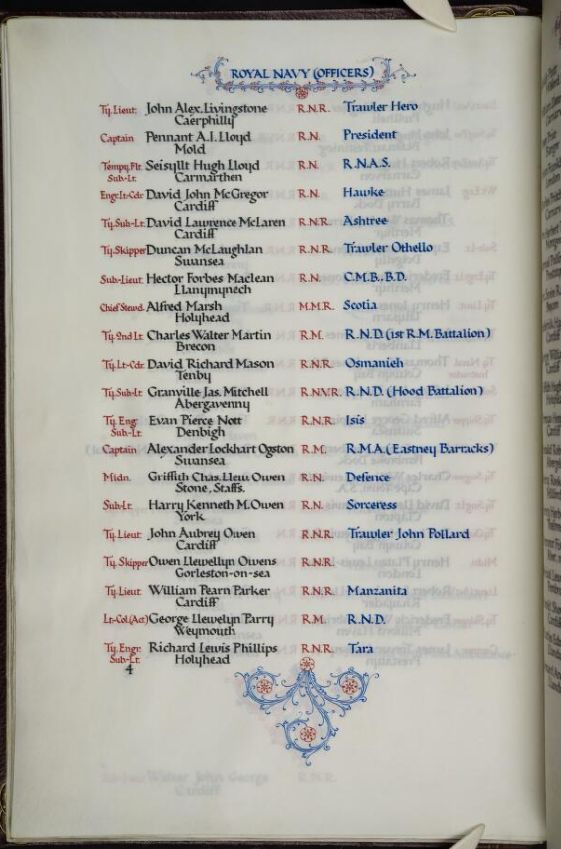 ROYAL NAVY (OFFICERS)
Ty. Lieut. John Alex. Livingstone R.N.R. Trawler Hero
Caerphilly
Captain Pennant A.I. Lloyd R.N. President
Mold
Tempy. Flt. Seisyllt Hugh Lloyd R.N. R.N.A.S.
Sub-Lt. Carmarthen
Engr. Lt-Cdr. David John McGregor R.N. Hawke
Cardiff
Ty. Sub-Lt. David Lawrence McLaren R.N.R. Ashtree
Cardiff
Ty. Skipper Duncan McLaughlan R.N.R. Trawler Othello
Swansea
Sub-Lieut. Hector Forbes Maclean R.N. C.M.B., B.D.
Llanymynech
Chief Stewd. Alfred Marsh M.M.R. Scotia
Holyhead
Ty. 2nd Lt. Charles Walter Martin R.M. R.N.D. (1st R.M. Battalion)
Brecon
Ty. Lt-Cdr. David Richard Mason R.N.R. Osmanieh
Tenby
Ty. Sub-Lt. Granville Jas. Mitchell R.N.V.R. R.N.D. (Hood Battalion)
Abergavenny
Ty. Eng. Evan Pierce Nott R.N.R. Isis
Sub-Lt. Denbigh
Captain Alexander Lockhart Ogston R.M. R.M.A. (Eastney Barracks)
Swansea
Midn. Griffith Chas. Llew Owen R.N. Defence
Stone, Staffs.
Sub-Lt. Harry Kenneth M. Owen R.N. Sorceress
York
Ty. Lieut. John Aubrey Owen R.N.R. Trawler John Pollard
Cardiff
Ty. Skipper Owen Llewellyn Owens R.N.R.
Gorleston-on-sea
Ty. Lieut. William Pearn Parker R.N.R. Manzanita
Cardiff
Lt-Col. (Act) George Llewelyn Parry R.M. R.N.D.
Weymouth
Ty. Engr. Richard Lewis Phillips R.N.R. Tara
Sub-Lt. Holyhead
4